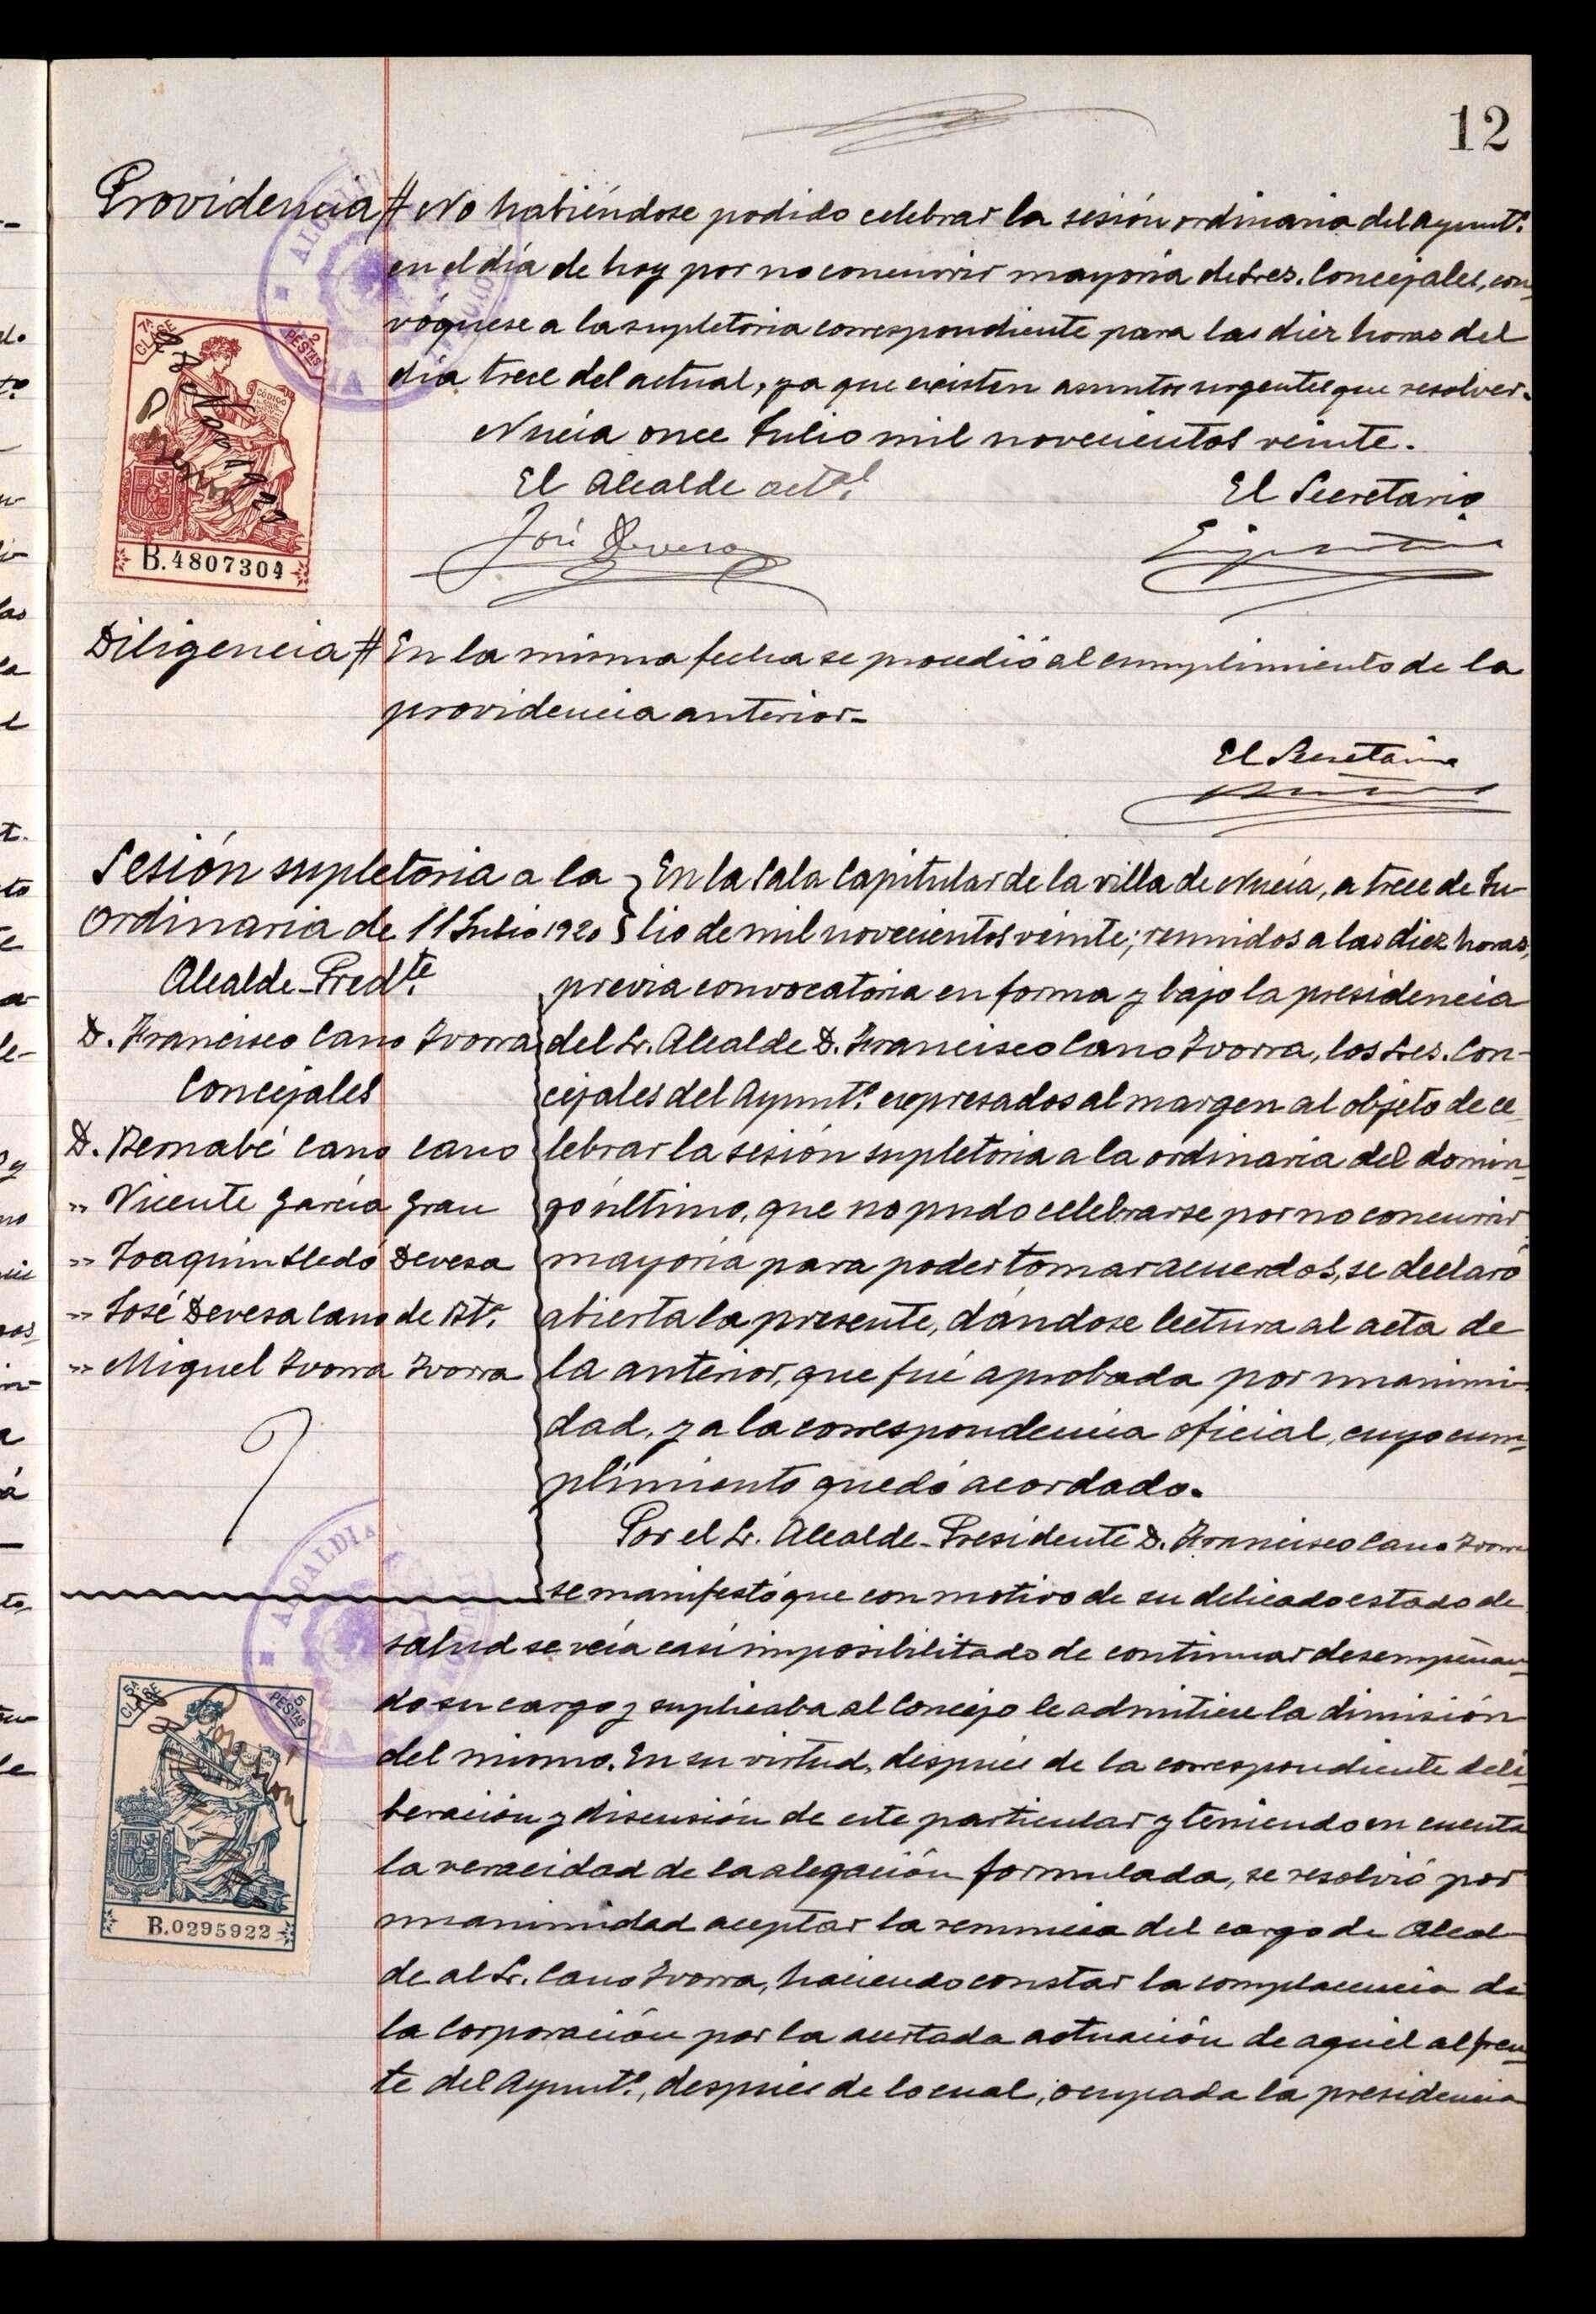 12
Providencia # No habiéndose podido celebrar la sesión ordinaria del Ayunt.º
en el día de hoy por no concurrir mayoria de Sres. Concejales, con-
vóquese a la supletoria correspondiente para las diez horas del
día trece del actual, ya que existen asuntos urgentes que resolver.
Nucía once Julio mil novecientos veinte.
El Alcalde actal.
El Secretario
José Devesa
7ª CLASE
2 PESTAS
CÓDIGO
B.4807304
Diligencia # En la misma fecha se procedió al cumplimiento de la
providencia anterior.
El Secretario
Sesión supletoria a la
Ordinaria de 11 Julio 1920
Alcalde-Presdte.
D. Francisco Cano Ivorra
Concejales
D. Bernabé Cano Cano
" Vicente García Grau
" Joaquin Lledó Devesa
" José Devesa Cano de Bta.
" Miguel Ivorra Ivorra
En la Sala Capitular de la villa de Nucía, a trece de Ju-
lio de mil novecientos veinte; reunidos a las diez horas,
previa convocatoria en forma y bajo la presidencia
del Sr. Alcalde D. Francisco Cano Ivorra, los Sres. Con-
cejales del Ayunt.º expresados al margen al objeto de ce-
lebrar la sesión supletoria a la ordinaria del domin-
go último, que no pudo celebrarse por no concurrir
mayoría para poder tomar acuerdos, se declaró
abierta la presente, dándose lectura al acta de
la anterior, que fué aprobada por unanimi-
dad, y a la correspondencia oficial, cuyo cum-
plimiento quedó acordado.
Por el Sr. Alcalde-Presidente D. Francisco Cano Ivorra
se manifestó que con motivo de su delicado estado de
salud se veía casi imposibilitado de continuar desempeñan-
do su cargo y suplicaba al Concejo le admitiese la dimisión
del mismo. En su virtud, después de la correspondiente deli-
beración y discusión de este particular y teniendo en cuenta
la veracidad de la alegación formulada, se resolvió por
unanimidad aceptar la renuncia del cargo de Alcal-
de al Sr. Cano Ivorra, haciendo constar la complacencia de
la Corporación por la acertada actuación de aquél al fren-
te del Ayunt.º, después de lo cual, ocupada la presidencia
ALCALDIA
5ª CLASE
5 PESTAS
B.0295922